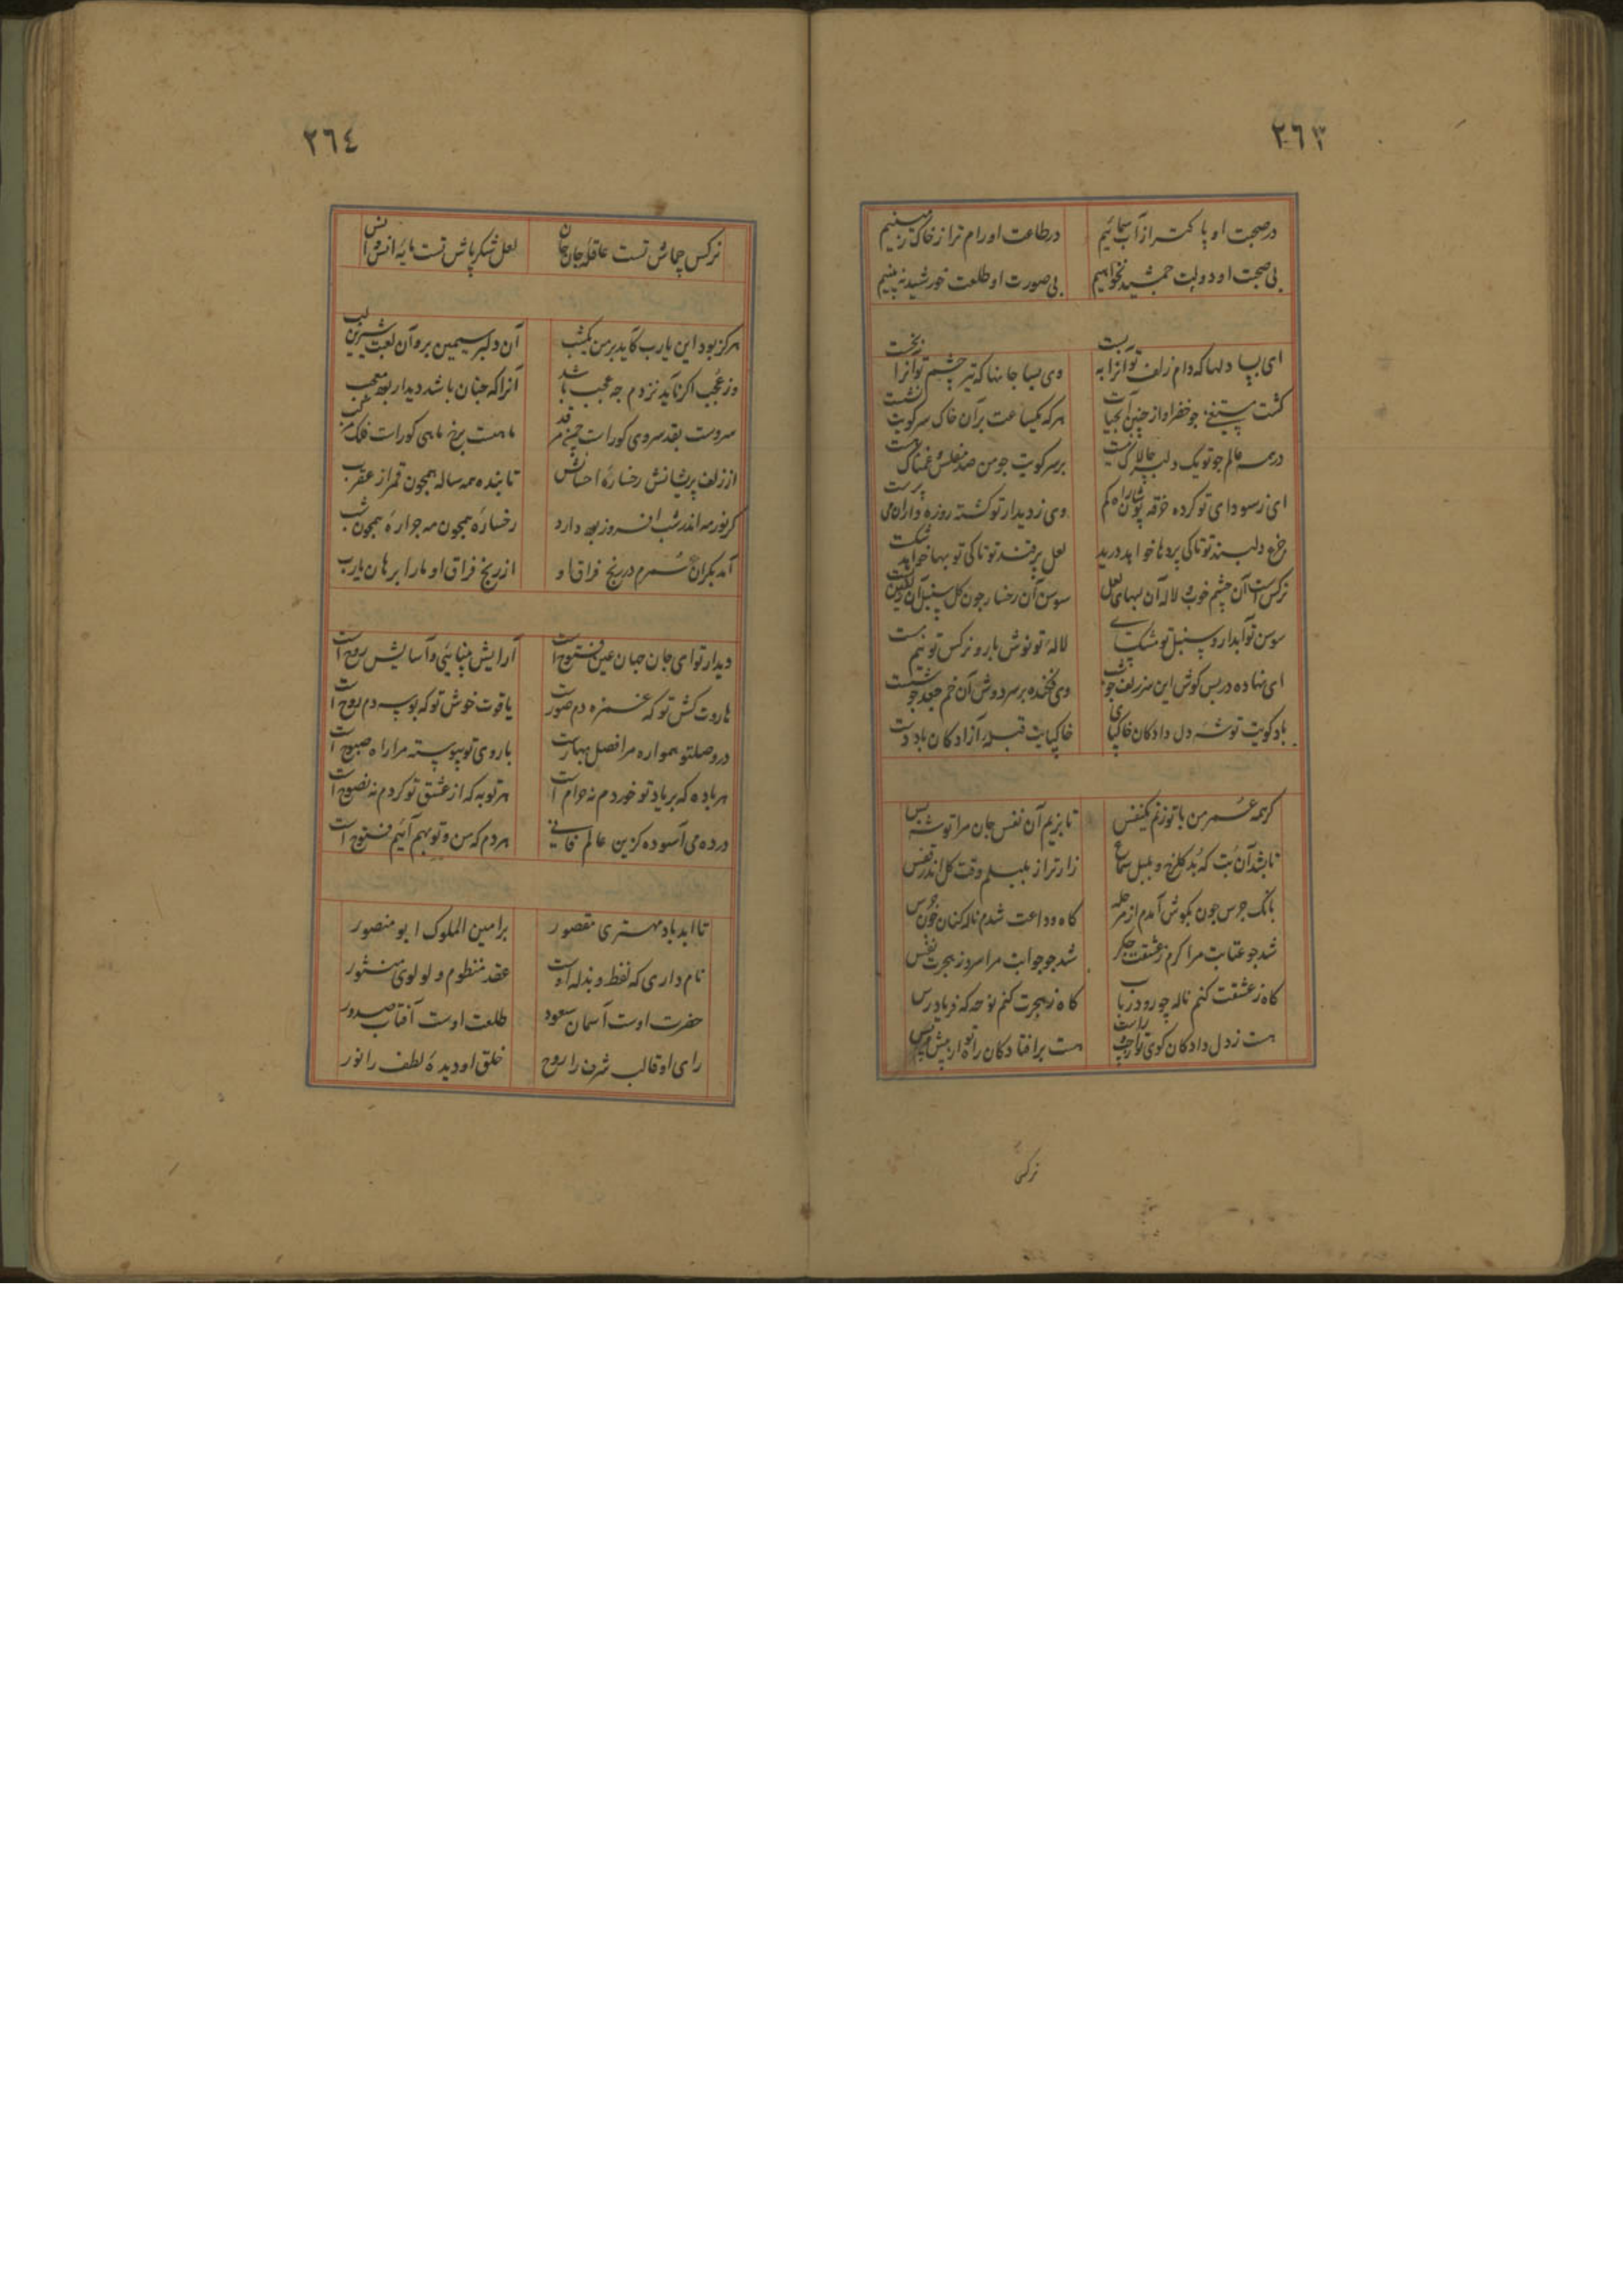 ٢٦٣
در صحبت او پاکتر از آب سمائیم در طاعت او رام تر از خاک زمینیم
بی صحبت او دولت جمشید نخواهیم بی صورت او طلعت خورشید نه بینیم
ای بسا دلها که دام زلف تو آنرا به بست وی بسا جانها که تیر چشم تو آنرا بخست
گشت مستغنی جو خضر او از آب حیات هر که یکساعت بر آن خاک سر کویت نشست
در همه عالم جو تو یک دلبر چالاک نیست بر سر کویت جو من صد مفلس غمناک هست
ای ز سودای تو کرده خرقه پوشان راه کم وی ز دیدار تو کشته روزه داران می پرست
جزع دلبند تو تا کی پردها خواهد درید لعل پر قند تو تا کی توبها خواهد شکست
نرکس است آن چشم خوب و لاله آن لبهای لعل سوسن آن رخسار جون کل سنبل آن زلفین
سوسن تو آبدار و سنبل تو مشک لاله تو نوش بار و نرکس تو نیم مست
ای نهاده در پس کوش این سر زلف جو وی فکنده بر سر دوش آن خم جعد جو شست
باد کویت توشه دل دادکان خاکپای خاکپایت قبله آزادکان باد دست
کر همه عمر من با تو زنم یکنفس تا بزیم آن نفس جان مرا توشه بس
تا بشد آن بت که بد کلرخ و بلبل سماع زارتر از بلبلم وقت کل اندر قفس
بانک جرس جون بکوش آمدم از مرحله کاه وداعت شدم ناله کنان جون جرس
شد جو عتابت مرا کرم ز عشقت جکر شد جو جوابت مرا سرد ز هجرت نفس
کاه ز عشقت کنم ناله جو رود رباب کاه ز هجرت کنم نوحه که فریادرس
هست ز دل دادکان کوی تو را جپ و راست هست بر افتادکان راه تو از پیش و پس
نرکس
٢٦٤
نرکس جماش تست عاقله جان جان لعل شکرپاش تست مایه انس و انس
هرکز بود این یارب کآید بر من یکشب آن دلبر سیمین بر و آن لعبت شیرین لب
وز عجب اکر ناید نزدم جه عجب باشد آنرا که جنان باشد دیدار بود معجب
سروست بقد سروی کوراست جمن مرقد ماهست برخ ماهی کوراست فلک مرکب
از زلف پریشانش رخساره احسانش تابنده همه ساله همچون قمر از عقرب
کر نور مه اندر شب افروز بود دارد رخساره همچون مه جراره همچون شب
آمد بکران عمرم در رنج فراق او از رنج فراق او ما را برهان یارب
دیدار تو ای جان جهان عین فتوح است آرایش بینائی و آسایش روح است
هاروت کش تو که غمزه دم صورست یاقوت خوش تو که بوسه دم روح است
در وصلتو همواره مرا فصل بهارست با روی تو پیوسته مرا راه صبوح است
هر باده که بر یاد تو خوردم نه حرام است هر توبه که از عشق تو کردم نه نصوح است
در ده می آسوده کزین عالم فانی هر دم که من و تو بهم آئیم فتوح است
تا ابد باد مهتری مقصور بر امین الملوک ابو منصور
نام داری که لفظ و بذله اوست عقد منظوم و لولوی منثور
حضرت اوست آسمان سعود طلعت اوست آفتاب صدور
رای او قالب شرف را روح خلق او دیده لطف را نور